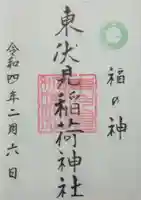 福の神
東伏見稲荷神社
令和四年二月六日